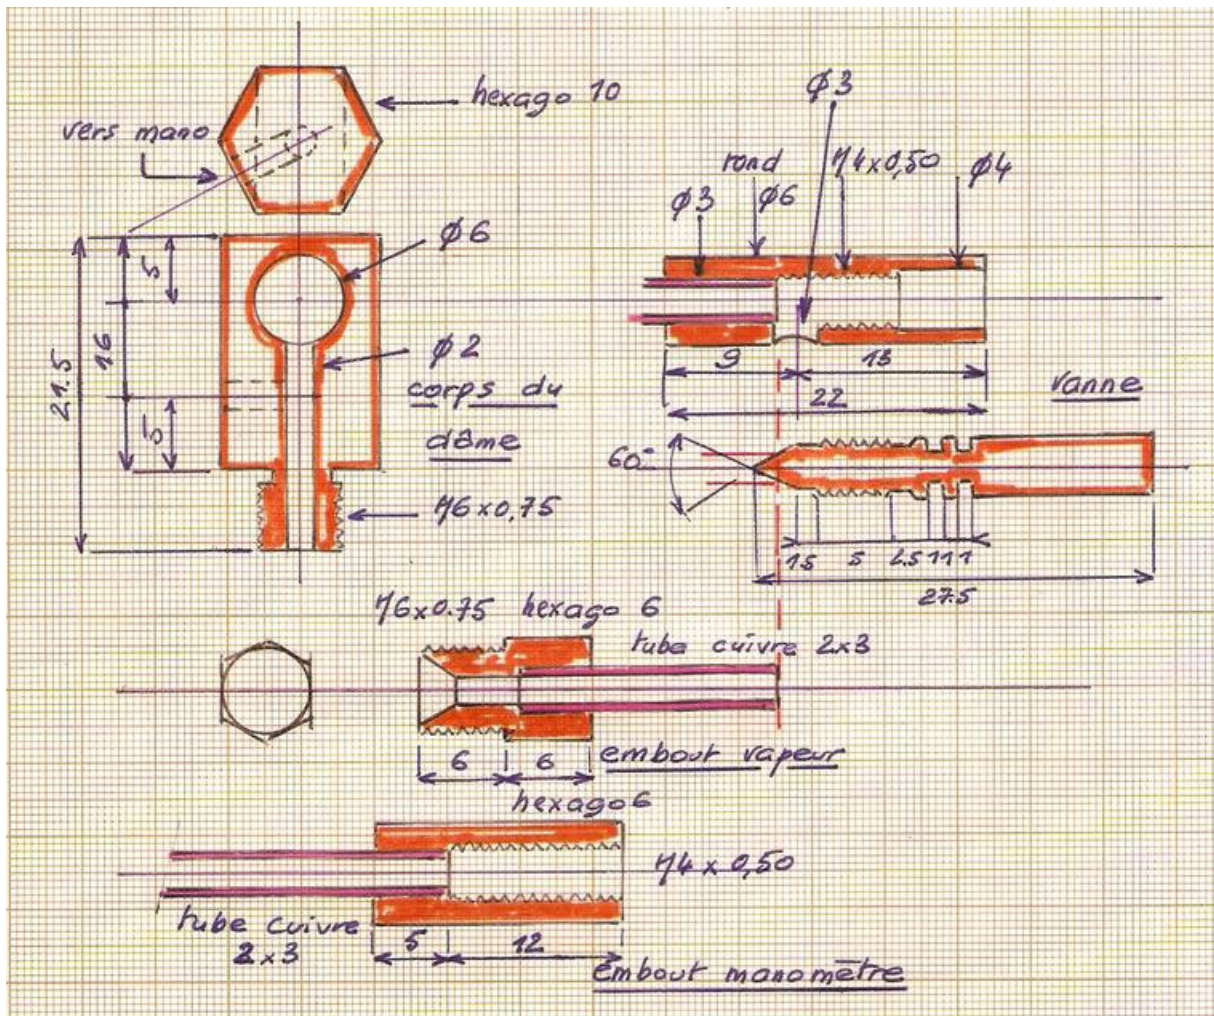 hexago 10
vers mano
ø6
5
16
21.5
ø2
corps du
dôme
5
M6x0,75
ø3
rond
M4x0,50
ø4
ø3
ø6
9
13
22
vanne
60°
1.5
5
2.5
1
1
1
27.5
M6x0.75 hexago 6
tube cuivre 2x3
6
6
embout vapeur
hexago 6
M4 x 0,50
tube cuivre
2x3
5
12
embout manomètre